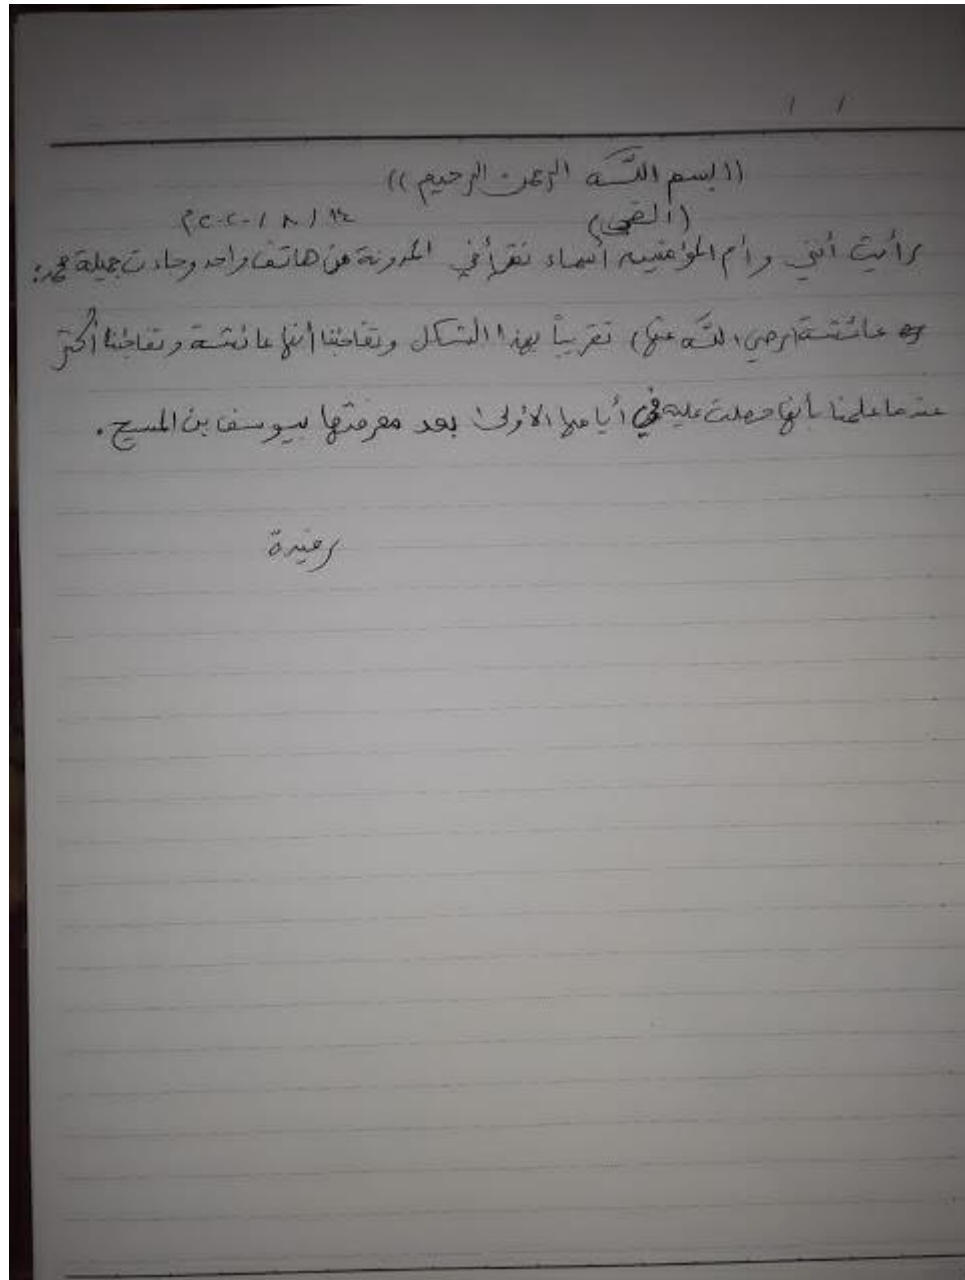 / /
((بسم اللّٰه الرحمن الرحيم))
(الضحى) ١٤ / ٨ / ٢٠٢٠ م
رأيت أنني وأم المؤمنين أسماء نقرأ في المدونة من هاتف واحد وجاءت جميلة محمد:
عائشة (رضي اللّٰه عنها) تقريباً بهذا الشكل وتفاجئنا أنها عائشة وتفاجئنا أكثر
عندما علمنا بأنها حصلت عليه في أيامها الأولى بعد معرفتها بيوسف بن المسيح .
رفيدة